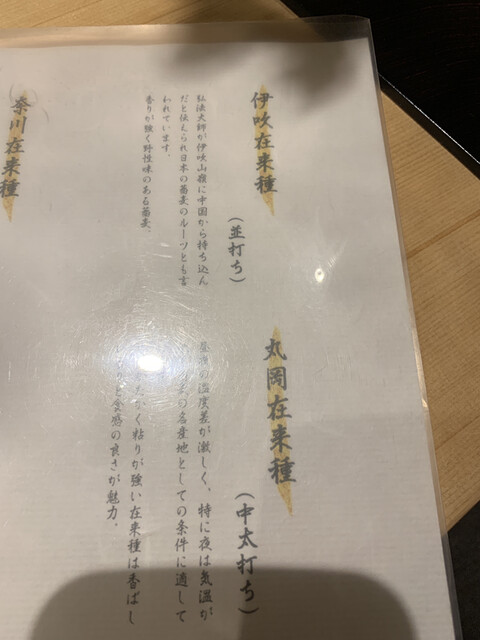 伊吹在来種
(並打ち)
弘法大師が伊吹山嶺に中国から持ち込ん
だと伝えられ日本の蕎麦のルーツとも言
われています。
香りが強く野性味のある蕎麦。
丸岡在来種
(中太打ち)
昼夜の温度差が激しく、特に夜は気温が
の名産地としての条件に適して
く粘りが強い在来種は香ばし
と食感の良さが魅力。
奈川在来種